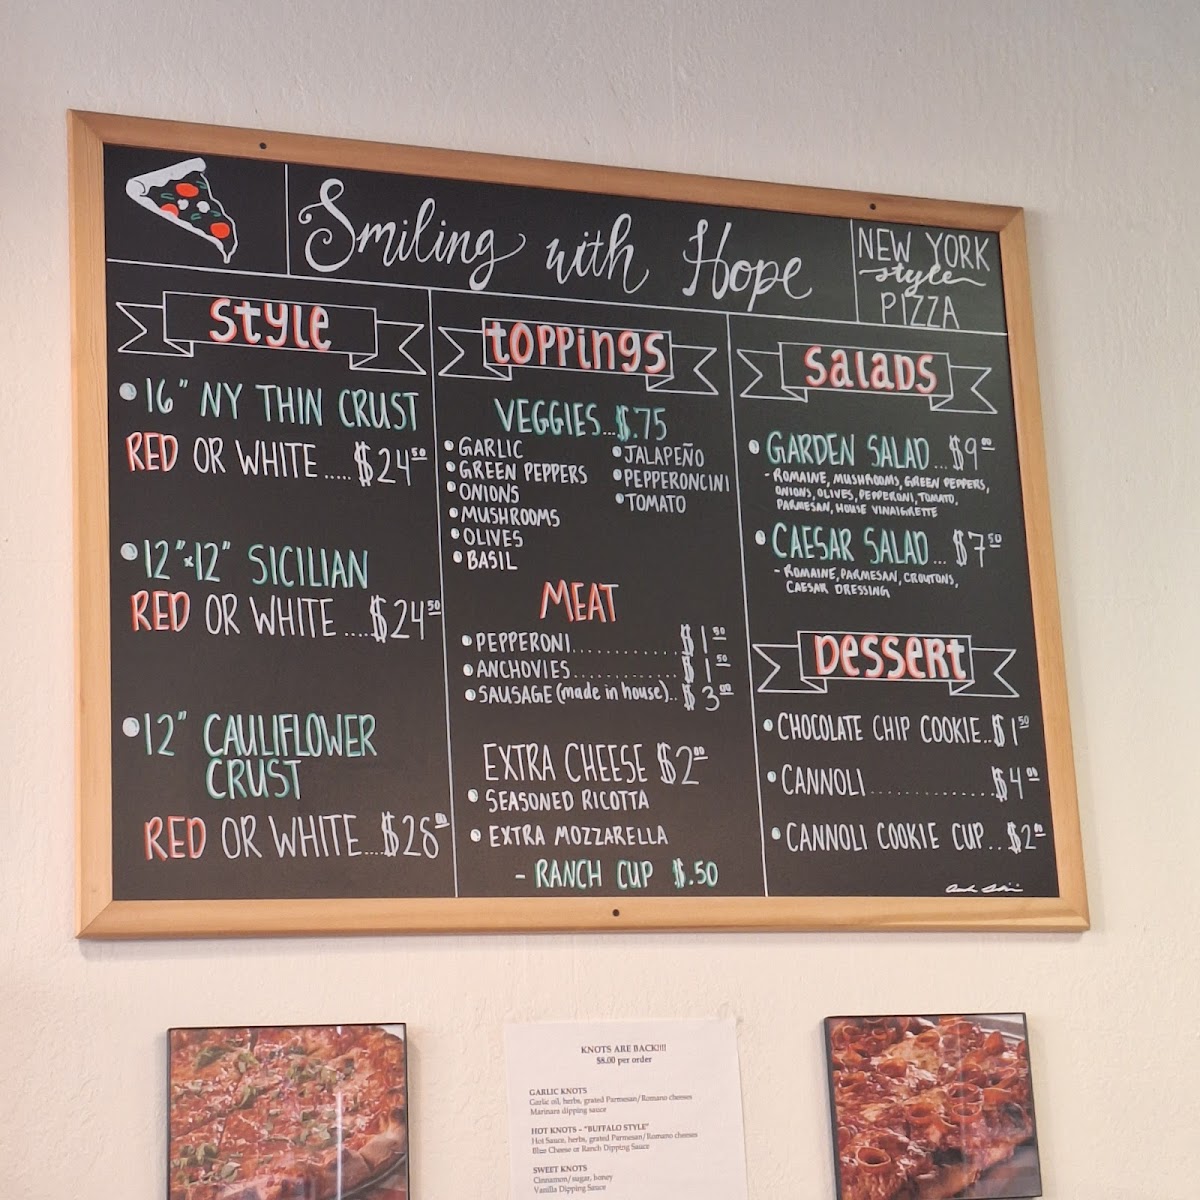 Smiling with Hope
NEW YORK
style
PIZZA
Style
• 16" NY THIN CRUST
RED OR WHITE..... $24.50
• 12"x12" SICILIAN
RED OR WHITE ....$24.50
• 12" CAULIFLOWER
CRUST
RED OR WHITE....$28
Toppings
VEGGIES...$.75
• GARLIC
• GREEN PEPPERS
• ONIONS
• MUSHROOMS
• OLIVES
• BASIL
• JALAPEÑO
• PEPPERONCINI
• TOMATO
MEAT
• PEPPERONI............ $1.50
• ANCHOVIES............ $1.50
• SAUSAGE (made in house).. $3.00
EXTRA CHEESE $2.00
• SEASONED RICOTTA
• EXTRA MOZZARELLA
- RANCH CUP $.50
Salads
• GARDEN SALAD...$9.00
- ROMAINE, MUSHROOMS, GREEN PEPPERS,
ONIONS, OLIVES, PEPPERONI, TOMATO,
PARMESAN, HOUSE VINAIGRETTE
• CAESAR SALAD... $7.50
- ROMAINE, PARMESAN, CROUTONS,
CAESAR DRESSING
Dessert
• CHOCOLATE CHIP COOKIE..$1.50
• CANNOLI..............$4.00
• CANNOLI COOKIE CUP..$2.00
KNOTS ARE BACK!!!!
$8.00 per order
GARLIC KNOTS
Garlic oil, herbs, grated Parmesan/Romano cheeses
Marinara dipping sauce
HOT KNOTS – "BUFFALO STYLE"
Hot Sauce, herbs, grated Parmesan/Romano cheeses
Blue Cheese or Ranch Dipping Sauce
SWEET KNOTS
Cinnamon/sugar, honey
Vanilla Dipping Sauce